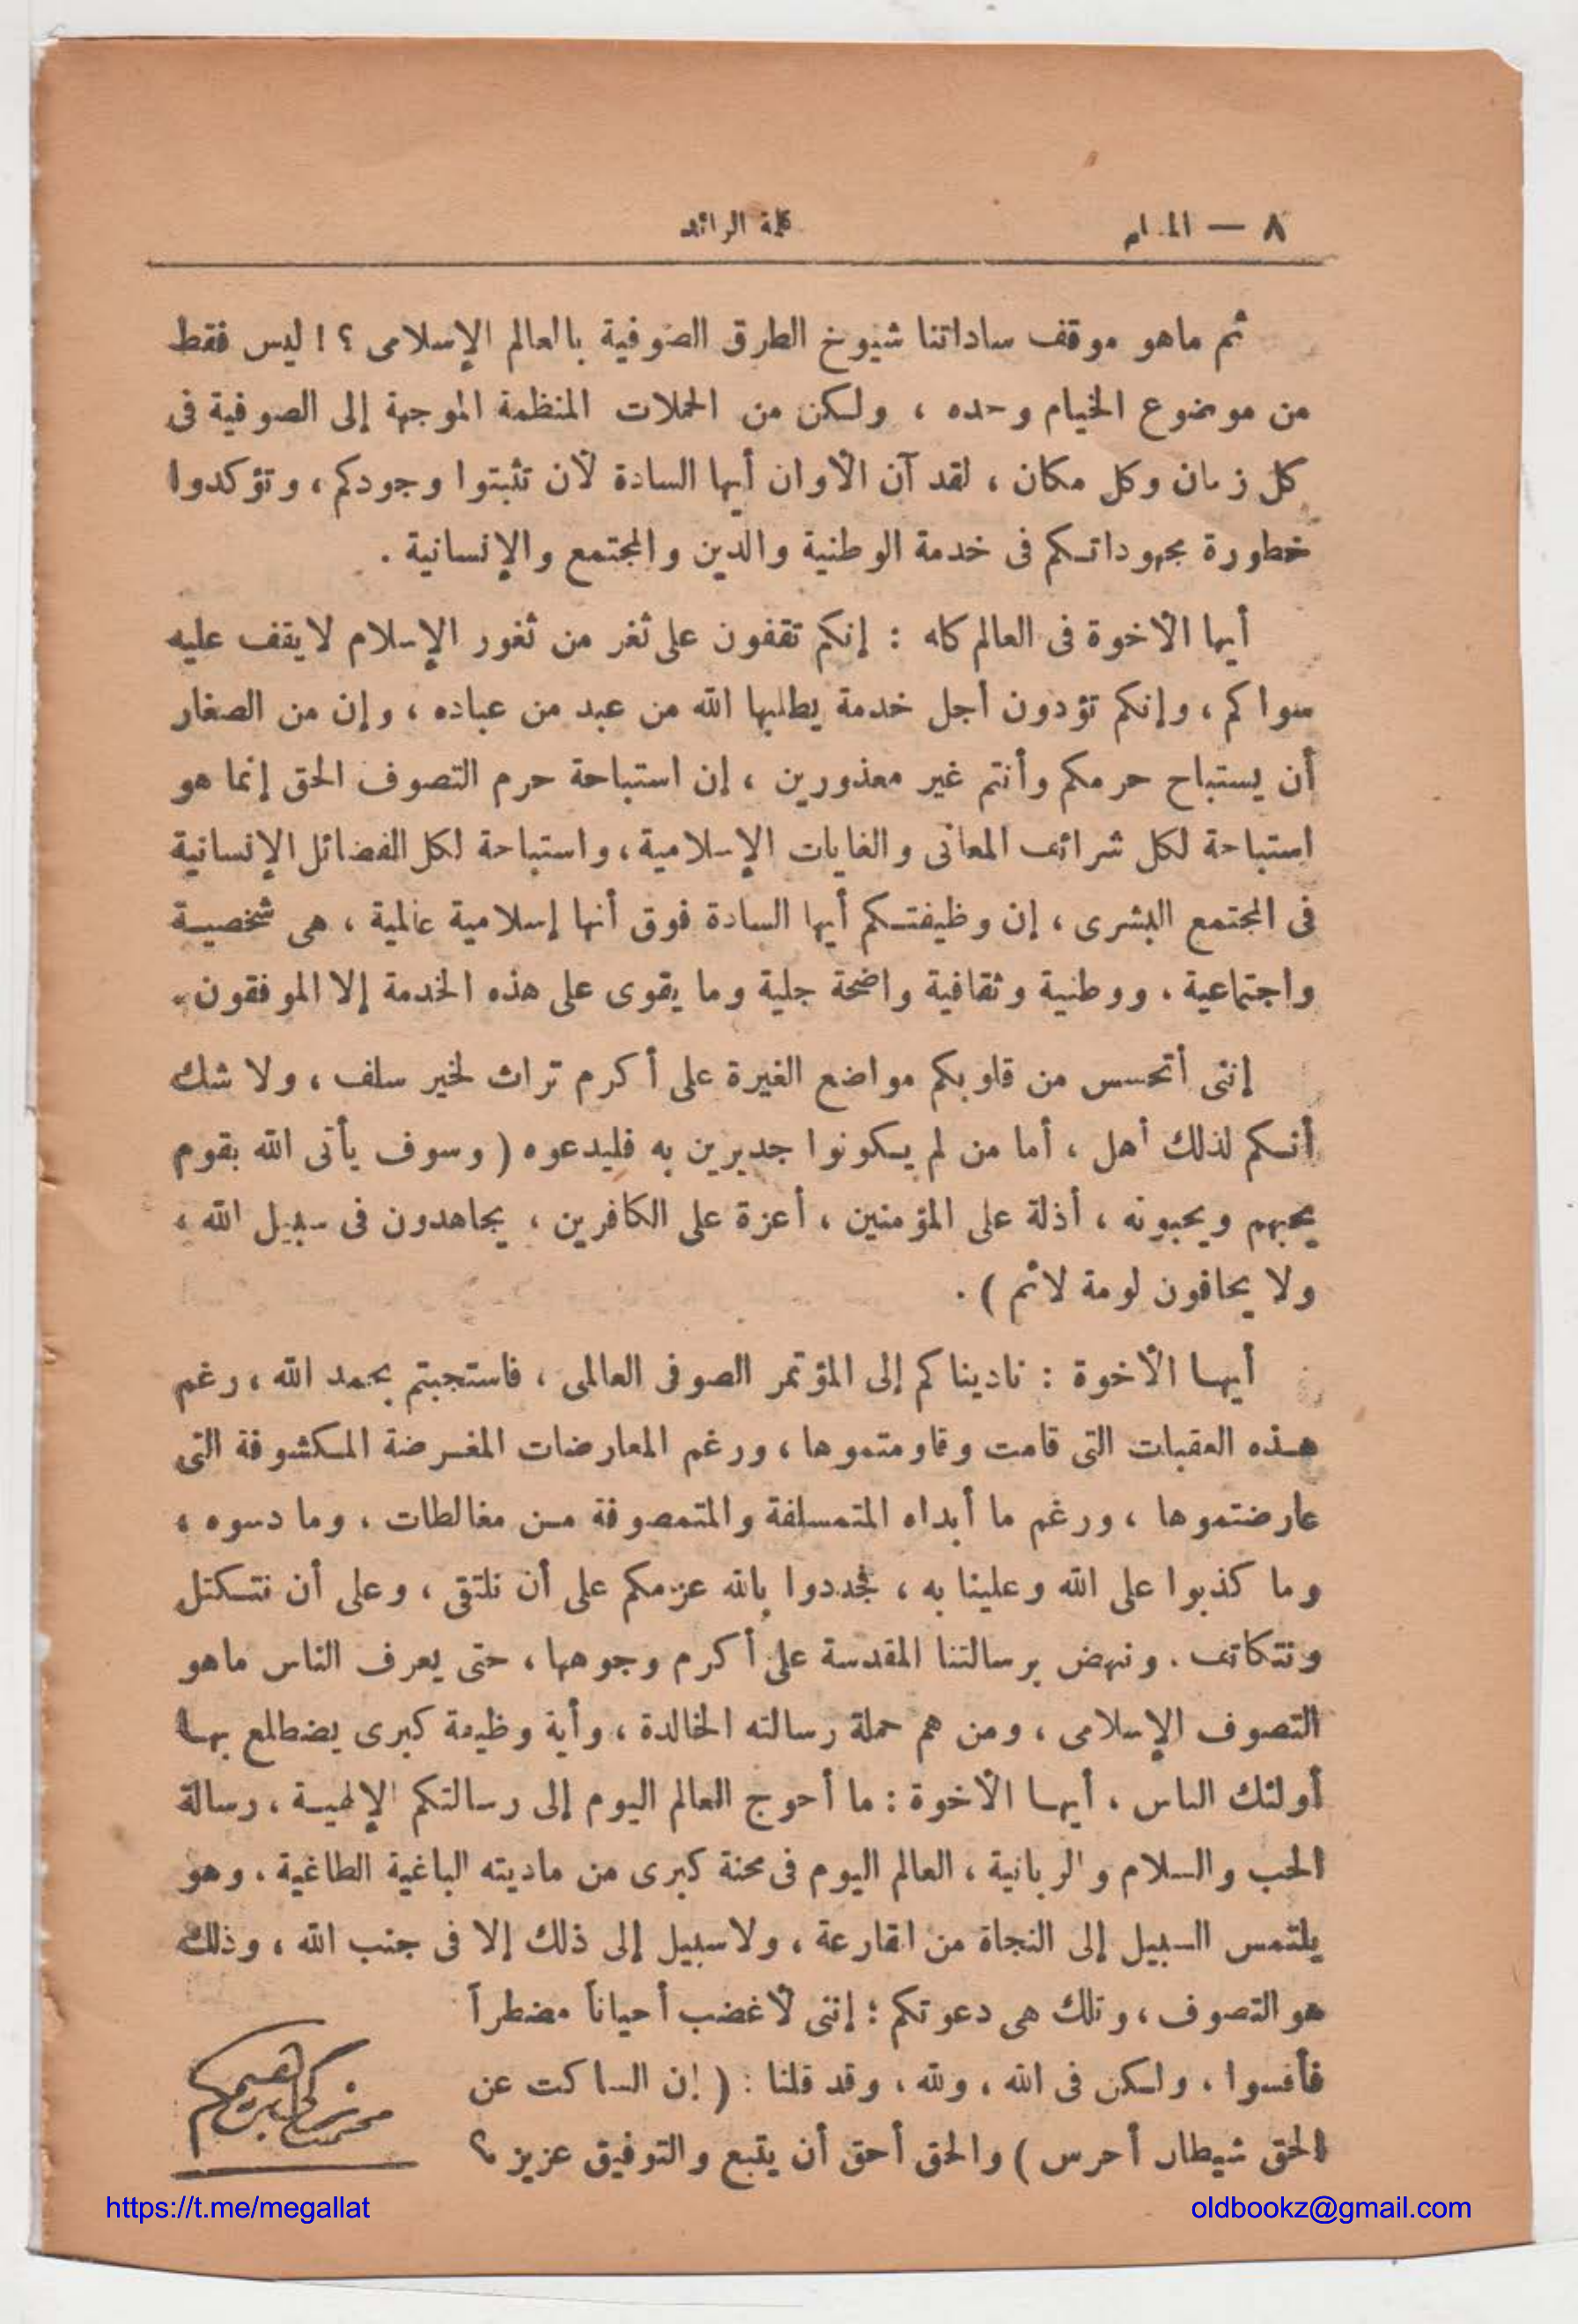 ٨ — المسلم
كلمة الرائد
ثم ماهو موقف ساداتنا شيوخ الطرق الصوفية بالعالم الإسلامى ؟ ! ليس فقط
من موضوع الخيام وحده ، ولكن من الحملات المنظمة الموجهة إلى الصوفية فى
كل زمان وكل مكان ، لقد آن الأوان أيها السادة لأن تثبتوا وجودكم ، وتؤكدوا
خطورة مجهوداتكم فى خدمة الوطنية والدين والمجتمع والإنسانية .
أيها الأخوة فى العالم كله : إنكم تقفون على ثغر من ثغور الإسلام لايقف عليه
سواكم ، وإنكم تؤدون أجل خدمة يطلبها الله من عبد من عباده ، وإن من الصغار
أن يستباح حرمكم وأنتم غير معذورين ، إن استباحة حرم التصوف الحق إنما هو
استباحة لكل شرائف المعانى والغايات الإسلامية ، واستباحة لكل الفضائل الإنسانية
فى المجتمع البشرى ، إن وظيفتكم أيها السادة فوق أنها إسلامية عالمية ، هى شخصية
واجتماعية ، ووطنية وثقافية واضحة جلية وما يقوى على هذه الخدمة إلا الموفقون .
إننى أتحسس من قلوبكم مواضع الغيرة على أكرم تراث لخير سلف ، ولا شك
أنكم لذلك أهل ، أما من لم يكونوا جديرين به فليدعوه ( وسوف يأتى الله بقوم
يحبهم ويحبونه ، أذلة على المؤمنين ، أعزة على الكافرين ، يجاهدون فى سبيل الله ،
ولا يخافون لومة لائم ) .
أيها الأخوة : ناديناكم إلى المؤتمر الصوفى العالمى ، فاستجبتم بحمد الله ، رغم
هذه العقبات التى قامت وقاومتموها ، ورغم المعارضات المغرضة المكشوفة التى
عارضتموها ، ورغم ما أبداه المتمسلفة والمتمصوفة من مغالطات ، وما دسوه ،
وما كذبوا على الله وعلينا به ، فجددوا بالله عزمكم على أن نلتقى ، وعلى أن نتكتل
ونتكاتف . وننهض برسالتنا المقدسة على أكرم وجوهها ، حتى يعرف الناس ماهو
التصوف الإسلامى ، ومن هم حملة رسالته الخالدة ، وأية وظيفة كبرى يضطلع بها
أولئك الناس ، أيها الأخوة : ما أحوج العالم اليوم إلى رسالتكم الإلهية ، رسالة
الحب والسلام والربانية ، العالم اليوم فى محنة كبرى من ماديته الباغية الطاغية ، وهو
يلتمس السبيل إلى النجاة من القارعة ، ولاسبيل إلى ذلك إلا فى جنب الله ، وذلك
هو التصوف ، وتلك هى دعوتكم ؛ إننى لأغضب أحياناً مضطراً
فأقسوا ، ولكن فى الله ، ولله ، وقد قلنا : ( إن الساكت عن
الحق شيطان أخرس ) والحق أحق أن يتبع والتوفيق عزيز ؟
محمد زكى ابراهيم
https://t.me/megallat
oldbookz@gmail.com